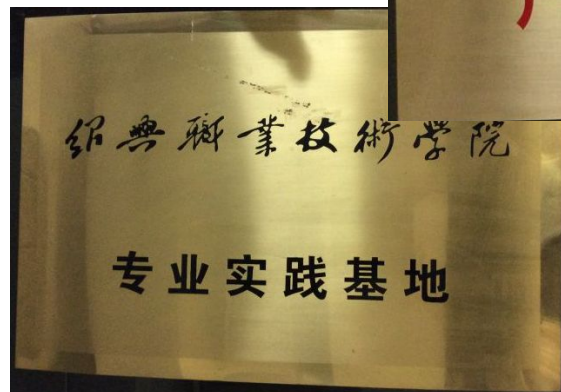 绍興職業技術學院
专业实践基地